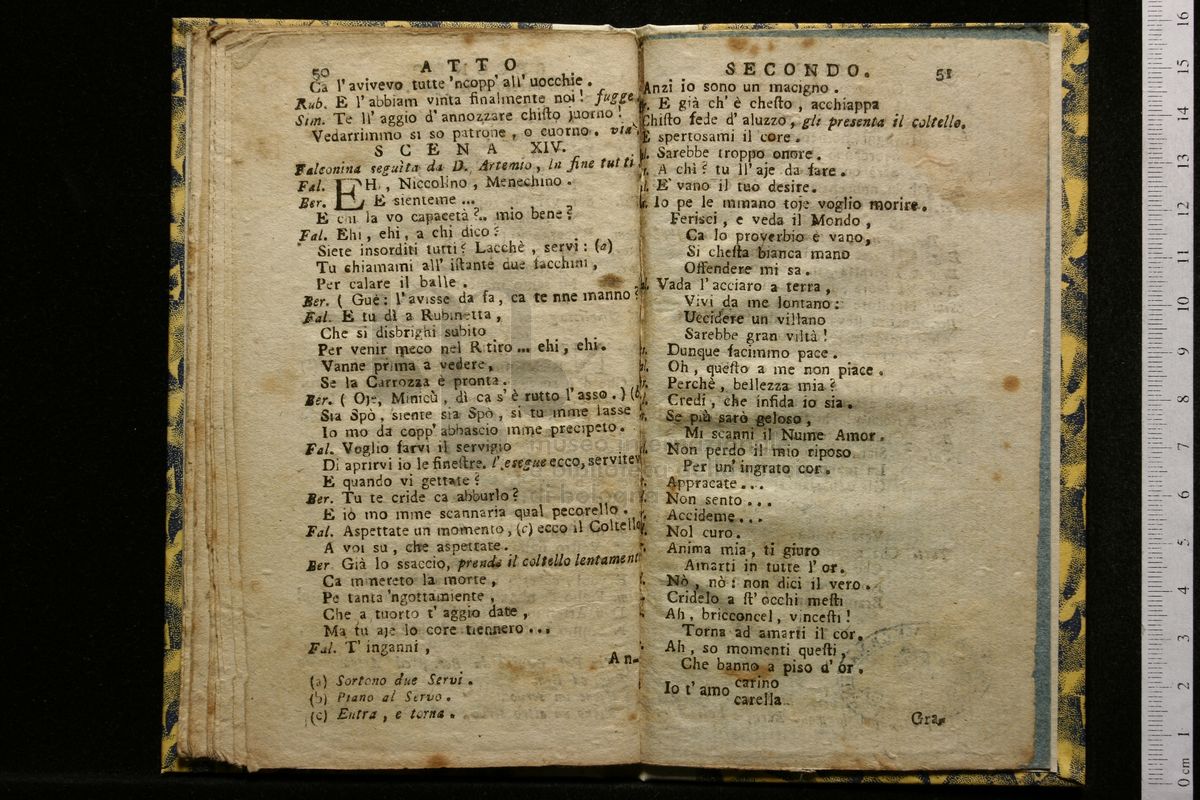 50 ATTO
Ca l'avivevo tutte 'ncopp' all' uocchie.
Rub. E l'abbiam vinta finalmente noi! fugge
Sim. Te ll' aggio d' annozzare chisto juorno!
Vedarrimmo si so patrone, o cuorno. via
SCENA XIV.
Falconina seguìta da D. Artemio, in fine tutti
Fal. EHi, Niccolino, Menechino.
Ber. E sienteme ...
E chi la vo capacetà?.. mio bene?
Fal. Ehi, ehi, a chi dico?
Siete insorditi tutti? Lacchè, servi: (a)
Tu chiamami all' istante due facchini,
Per calare il balle.
Ber. ( Guè: l'avisse da fa, ca te nne manno?
Fal. E tu dì a Rubinetta,
Che si disbrighi subito
Per venir meco nel Ritiro ... ehi, ehi.
Vanne prima a vedere,
Se la Carrozza è pronta.
Ber. ( Oje, Minicù, dì ca s'è rutto l'asso. ) (b
Sia Spò, siente sia Spò, si tu mme lasse
Io mo da copp' abbascio mme precipeto.
Fal. Voglio farvi il servigio
Di aprirvi io le finestre. l'esegue ecco, servitev
E quando vi gettate?
Ber. Tu te cride ca abburlo?
E iò mo mme scannaria qual pecorello.
Fal. Aspettate un momento, (c) ecco il Coltello
A voi su, che aspettate.
Ber. Già lo ssaccio, prende il coltello lentament
Ca mmereto la morte,
Pe tanta 'ngottamiente,
Che a tuorto t' aggio date,
Ma tu aje lo core tiennero ...
Fal. T' inganni,
An-
(a) Sortono due Servi.
(b) Piano al Servo.
(c) Entra, e torna.
SECONDO. 51
Anzi io sono un macigno.
E già ch' è chesto, acchiappa
Chisto fede d' aluzzo, gli presenta il coltello.
E spertosami il core.
Sarebbe troppo onore.
A chi? tu ll' aje da fare.
E' vano il tuo desire.
Io pe le mmano toje voglio morire.
Ferisci, e veda il Mondo,
Ca lo proverbio è vano,
Si chesta bianca mano
Offendere mi sa.
Vada l'acciaro a terra,
Vivi da me lontano:
Uccidere un villano
Sarebbe gran viltà!
Dunque facimmo pace.
Oh, questo a me non piace.
Perchè, bellezza mia?
Credi, che infida io sia.
Se più sarò geloso,
Mi scanni il Nume Amor.
Non perdo il mio riposo
Per un' ingrato cor.
Appracate...
Non sento...
Accideme...
Nol curo.
Anima mia, ti giuro
Amarti in tutte l' or.
Nò, nò: non dici il vero.
Cridelo a st' occhi mesti
Ah, bricconcel, vincesti!
Torna ad amarti il cor.
Ah, so momenti questi,
Che hanno a piso d' or.
Io t' amo carino
carella.
Gra-